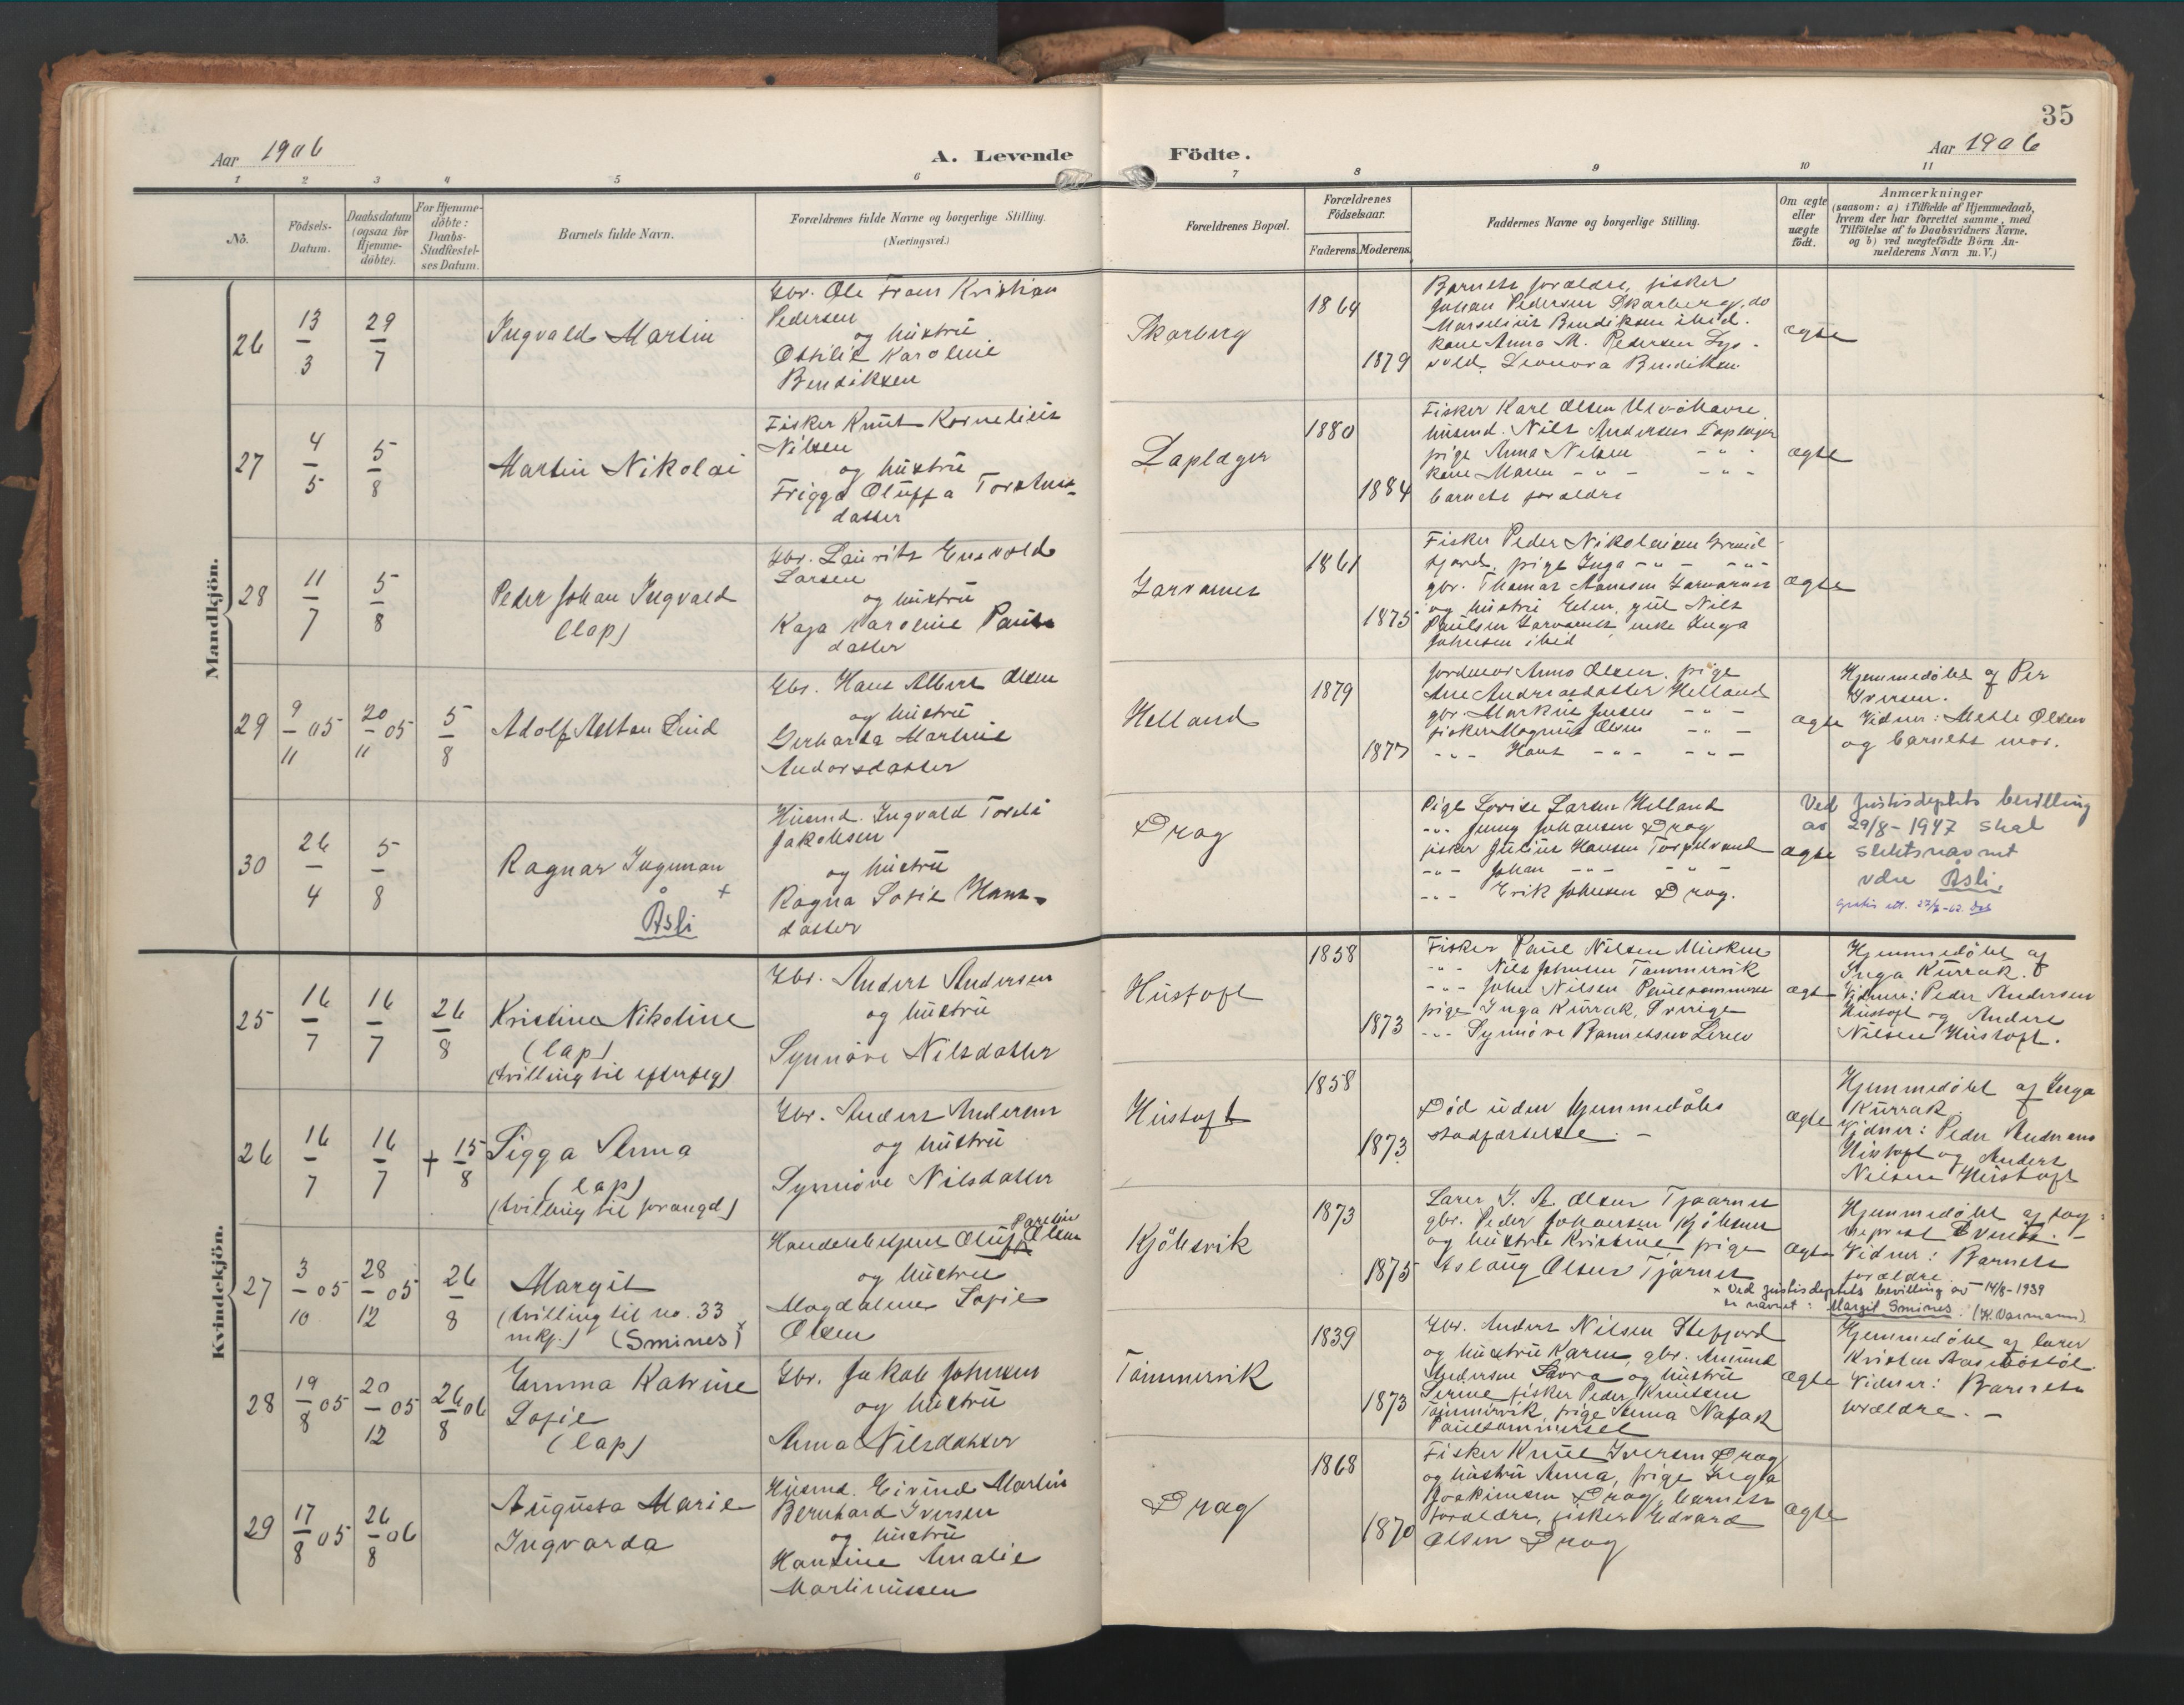 35
Aar 1906
A. Levende Födte.
Aar 1906
1 2 3 4 5 6 7 8 9 10 11
No.
Födsels-
Datum.
Daabsdatum
(ogsaa for
Hjemme-
döbte).
For Hjemme-
döbte:
Daabs-
Stadfæstel-
ses Datum.
Barnets fulde Navn.
Forældrenes fulde Navne og borgerlige Stilling.
(Næringsvei.)
Forældrenes Bopæl.
Forældrenes
Födselsaar.
Faderens. Moderens.
Faddernes Navne og borgerlige Stilling.
Om ægte
eller
uægte
födt.
Anmærkninger
(saasom: a) i Tilfælde af Hjemmedaab,
hvem der har forrettet samme, med
Tilföielse af to Daabsvidners Navne,
og b) ved uægtefödte Börn An-
melderens Navn m. V.)
Mandkjön.
26
13/3
29/7
Ingvald Martin
Gbr. Ole Frans Kristian
Pedersen
og hustru
Ottilie Karoline
Bendiksen
Skarberg
1864
1879
Barnets forældre, fisker
Johan Pedersen Skarberg, do
Marselius Bendiksen ibid.
kone Anna M. Pedersen
Leonora Bendiksen
ægte
27
4/5
5/8
Martin Nikolai
Fisker Knut Kornelius
Nilsen
og hustru
Frigga Oluffa Torstens-
datter
Laplæger
1880
1884
Fisker Karl Olsen
husmd. Nils Andersen Laplæger
pige Anna Nilsen - " -
kone Maren - " - - " -
barnets forældre
ægte
28
11/7
5/8
Peder Johan Ingvald
(lap)
Gbr. Laurits Enevold
Larsen
og hustru
Kaja Karoline Pauls
datter
Sarvanes
1861
1875
Fisker Peder Nikolaisen Grund
fjord, pige Inga - " - - " -
gbr. Thomas
og hustru Elen, gut Nils
Paulsen, enke Inga
Johnsen ibid
ægte
29
9/11 05
20/11 05
5/8
Adolf Anton Lind
Gbr. Hans Albert Olsen
og hustru
Gerharda Martine
Andorsdatter
Helland
1879
1877
Jordmor Anna Olsen, pige
Ane Andreasdatter Helland
gbr. Markus Jensen - " -
fisker Magnus Olsen - " -
- " - Hans - " - - " -
ægte
Hjemmedøbt af Per
Iversen.
Vidner: Mette Olsen
og barnets mor.
30
26/4
5/8
Ragnar Ingman +
Åsli
Husmd. Ingvald Torleif
Jakobsen
og hustru
Ragna Sofie Hans-
datter
Drag
Pige Lovise Larsen Helland
- " - Jenny Johansen Drag
fisker Julius Hansen
- " - Johan - " - - " -
- " - Erik Johnsen Drag.
ægte
Ved Justisdeptets bevilling
av 29/8-1947 skal
slektsnavnet
være Åsli.
Kvindekjön.
25
16/7
16/7
26/8
Kristina Nikoline
(lap)
(tvilling til efterfølg)
Gbr. Anders Andersen
og hustru
Synnøve Nilsdatter
Hustoft
1858
1873
Fisker Paul Nilsen Musken
- " - Nils Johnsen Tømmervik
- " - John Nilsen
pige Inga Kurrak, Sverige
- " - Synnøve
ægte
Hjemmedøbt af
Inga Kurrak.
Vidner: Peder Andersen
Hustoft og Anders
Nilsen Hustoft.
26
16/7
16/7
+ 15/8
Sigga Anna
(lap)
(tvilling til forangd)
Gbr. Anders Andersen
og hustru
Synnøve Nilsdatter
Hustoft
1858
1873
Død uden hjemmedåbs
stadfæstelse. -
ægte
Hjemmedøbt af Inga
Kurrak.
Vidner: Peder Andersens
Hustoft og Anders
Nilsen Hustoft
27
3/10 05
28/12 05
26/8
Margit
(tvilling til no. 33
mkj.) (Smines) x
Handelsbetjent Oluf Parelius Olsen
og hustru
Magdalene Sofie
Olsen
Kjøbsvik
1873
1875
Lærer J. A. Olsen Tjaarnes
gbr. Peder Johansen Kjøbsnes
og hustru Kristine, pige
Aslaug Olsen Tjårnes
ægte
Hjemmedøbt af sog-
neprest Evensen. -
Vidner: Barnets
forældre.
x Ved Justisdeptets bevilling av 14/8-1939
er navnet: Margit Smines.
28
19/8 05
20/12 05
26/8 06
Emma Katrine
Sofie
(lap)
Gbr. Jakob Johnsen
og hustru
Anna Nilsdatter
Tømmervik
1839
1873
Gbr. Anders Nilsen Stefjord
og hustru Karen, gbr. Amund
Andersen Savra og hustru
Serine, fisker Peder Knutsen
Tømmervik, pige Anna
ægte
Hjemmedøbt af lærer
Kristen
Vidner: Barnets
forældre. -
29
17/8 05
26/8 06
Augusta Marie
Ingvarda
Husmd. Eivind Martin
Bernhard Iversen
og hustru
Hansine Amalie
Martinussen
Drag
1868
1870
Fisker Knut Iversen Drag
og hustru Anna, pige Inga
Joakimsen Drag, barnets
forældre, fisker Edvard
Olsen Drag
ægte